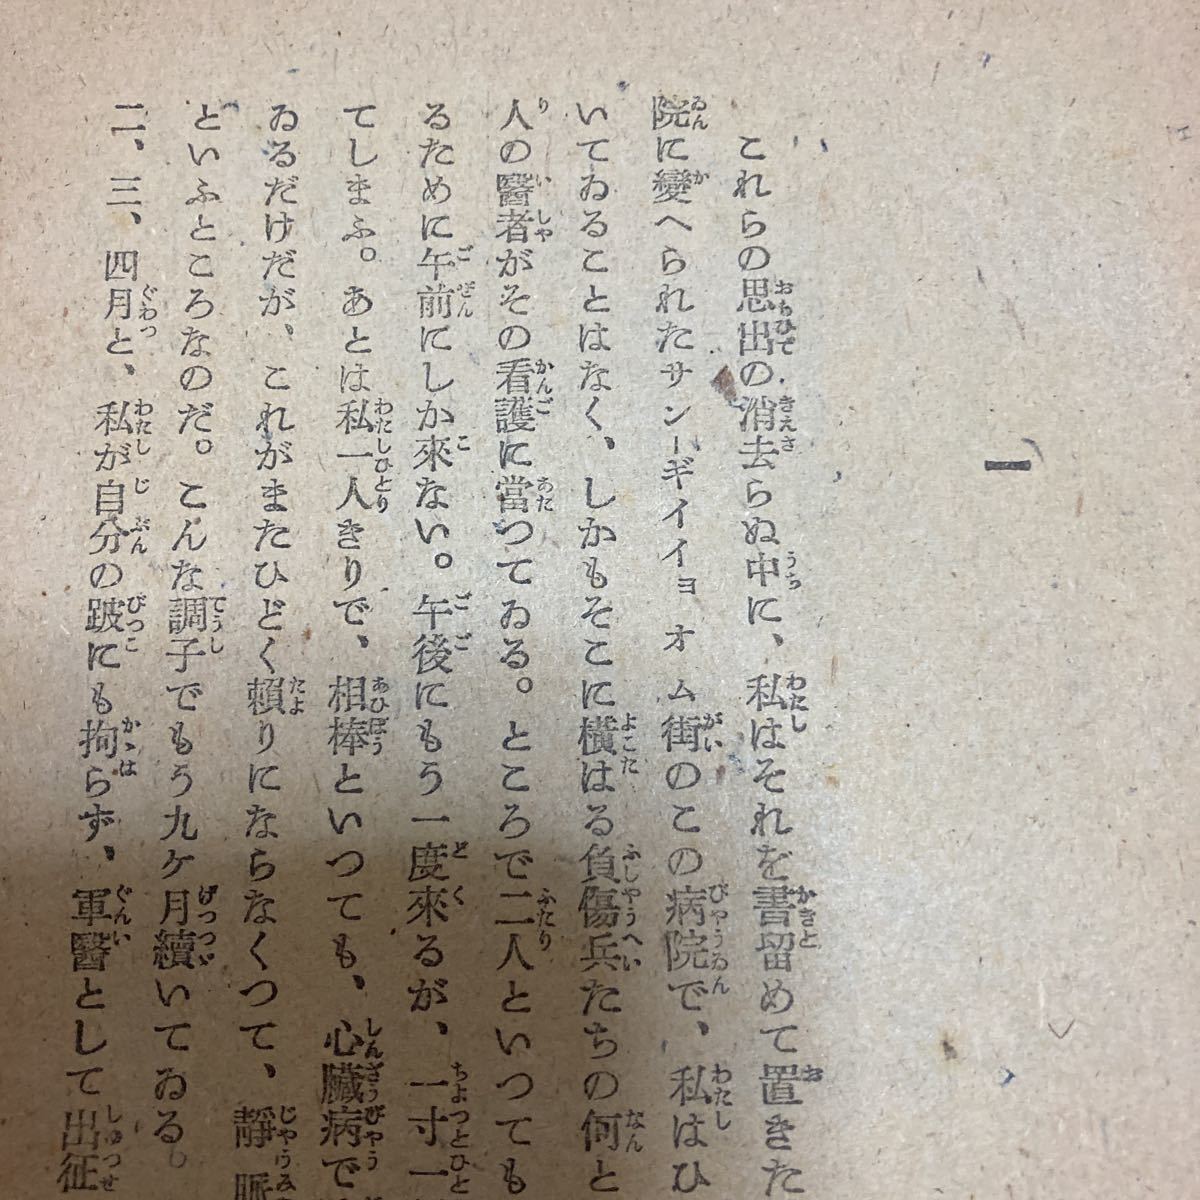 一
これらの思出の消去らぬ中に、私はそれを書留めて置きた
院に變へられたサン－ギイイョオム街のこの病院で、私はひ
いてゐることはなく、しかもそこに横はる負傷兵たちの何と
人の醫者がその看護に當つてゐる。ところで二人といつても
るために午前にしか來ない。午後にもう一度來るが、一寸一
てしまふ。あとは私一人きりで、相棒といつても、心臟病で
ゐるだけだが、これがまたひどく賴りにならなくつて、靜脈
といふところなのだ。こんな調子でもう九ケ月續いてゐる。
二、三、四月と、私が自分の跛にも拘らず、軍醫として出征